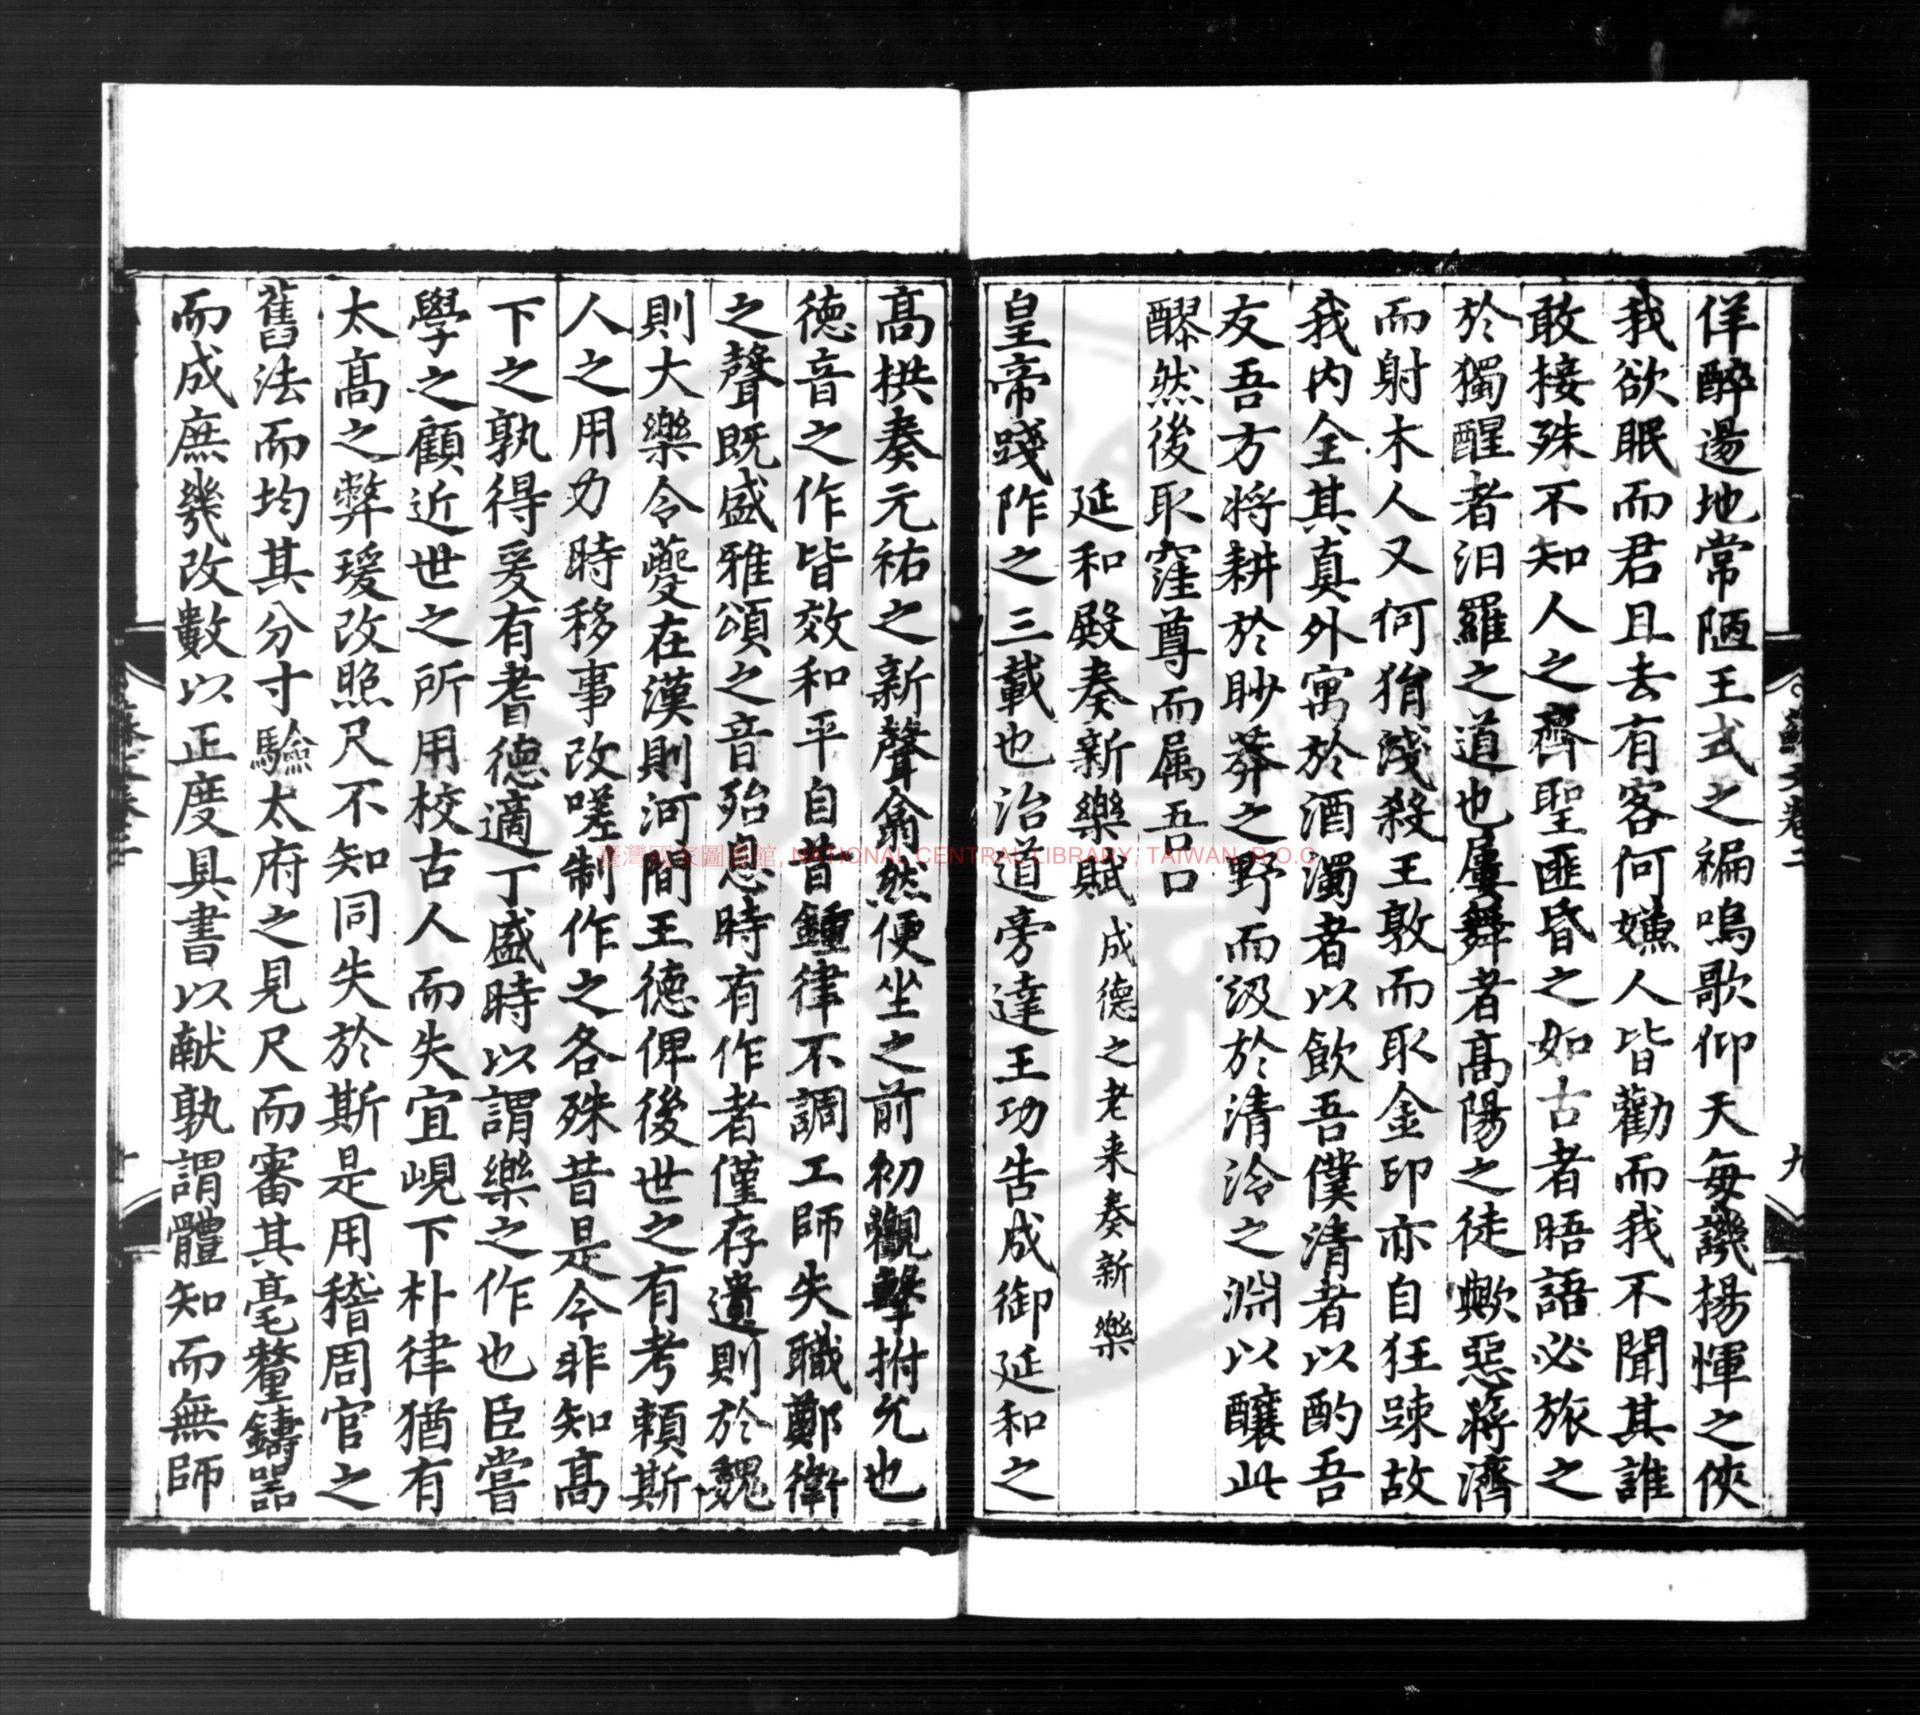 佯醉逿地常陋王式之褊嗚歌仰天每譏揚惲之俠
我欲眠而君且去有客何嫌人皆勸而我不聞其誰
敢接殊不知人之齊聖匪昏之如古者晤語必旅之
於獨醒者汨羅之道也屢舞者高陽之徒歟惡蔣濟
而射木人又何狷淺殺王敦而取金印亦自狂踈故
我内全其真外寓於酒濁者以飲吾僕清者以酌吾
友吾方將耕於眇莽之野而汲於清泠之淵以釀此
醪然後取窪尊而属吾口
延和殿奏新樂賦 成德之老来奏新樂
皇帝踐阼之三載也治道旁達王功告成御延和之
高拱奏元祐之新聲翕然便坐之前初觀擊拊允也
徳音之作皆效和平自昔鍾律不調工師失職鄭衛
之聲既盛雅頌之音殆息時有作者僅存遺則於魏
則大樂令夔在漢則河間王德俾後世之有考賴斯
人之用力時移事改嗟制作之各殊昔是今非知高
下之孰得爰有耆德適丁盛時以謂樂之作也臣嘗
學之顧近世之所用校古人而失宜峴下朴律猶有
太高之弊瑗改照尺不知同失於斯是用稽周官之
舊法而均其分寸驗太府之見尺而審其毫釐鑄器
而成庶幾改數以正度具書以献孰謂體知而無師
蘇文卷二
九
臺灣國家圖書館, NATIONAL CENTRAL LIBRARY, TAIWAN, R.O.C